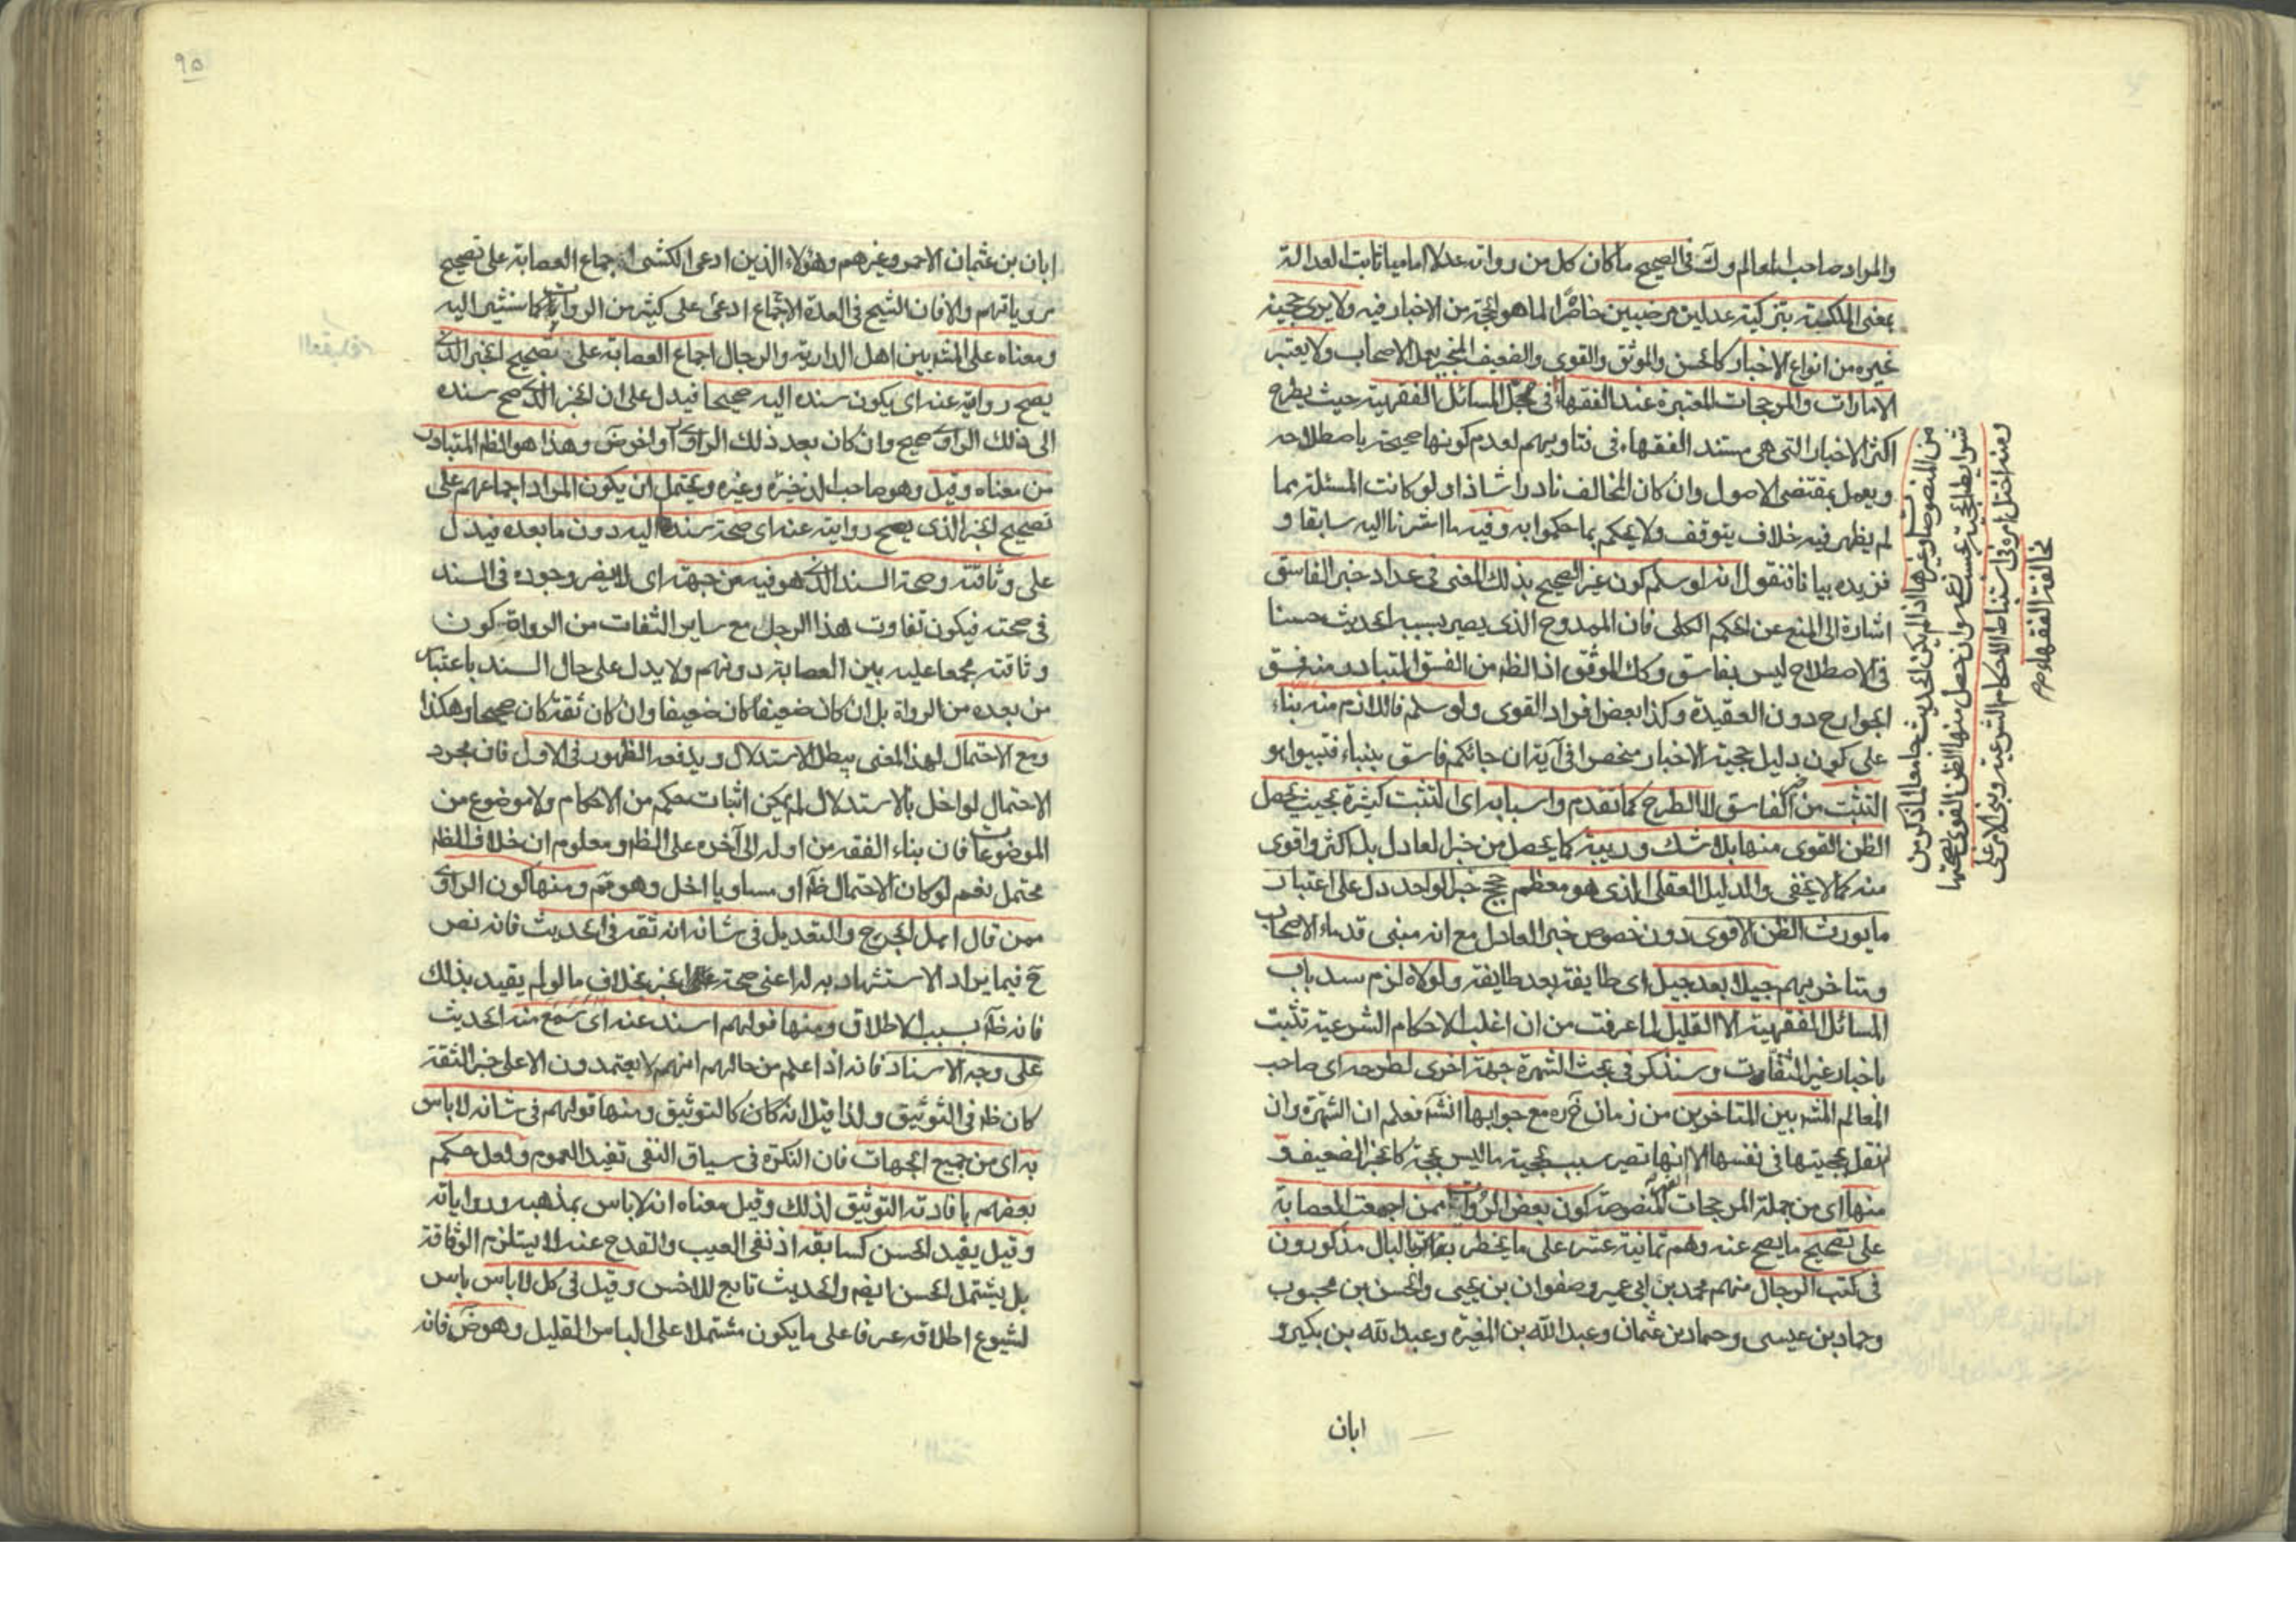 والمراد صاحب المعالم وك في الصحيح ما كان كل من رواته عدلا اماميا ثابت العدالة
بمعنى الملكة بتزكية عدلين مرضيين حاصرا لما هو الحجة من الاخبار فيه ولا يرى حجية
غيره من انواع الاخبار كالحسن والموثق والقوى والضعيف المنجبر بعمل الاصحاب ولا يعتبر
الامارات والمرجحات المعتبرة عند الفقهاء في محل المسائل الفقهية حيث يطرح
اكثر الاخبار التي هي مستند الفقهاء في فتاويهم لعدم كونها صحيحة باصطلاحه
ويعمل بمقتضى الاصول وان كان المخالف نادرا شاذا ولو كانت المسئلة مما
لم يظهر فيه خلاف يتوقف ولا يحكم بما حكموا به وفيه ما اشرنا اليه سابقا و
نزيده بيانا فنقول انه لو سلم كون غير الصحيح بذلك المعنى في عداد خبر الفاسق
اشارة الى المنع عن الحكم الكلى فان الممدوح الذي يصير بسببه الحديث حسنا
في الاصطلاح ليس بفاسق وكك الموثق اذ الظ من الفسق المتبادر منه فسق
الجوارح دون العقيدة وكذا بعض افراد القوى ولو سلم فاللازم منه بناء
على كون دليل حجية الاخبار منحصرا في آية ان جائكم فاسق بنباء فتبينوا هو
التثبت من الفاسق لا الطرح كما تقدم واسبابه اى التثبت كثيرة بحيث يحصل
الظن القوى منها بلا شك وريبة كما يحصل من خبر العادل بل اكثر واقوى
منه كما لا يخفى والدليل العقلى الذى هو معظم حجج خبر الواحد دل على اعتبار
ما يورث الظن الاقوى دون خصوص خبر العادل مع انه مبنى قدماء الاصحاب
ومتاخريهم جيلا بعد جيل اى طايفة بعد طايفة ولولاه لزم سد باب
المسائل الفقهية الا القليل لما عرفت من ان اغلب الاحكام الشرعية تثبت
باخبار غير الثقات وسنذكر في بحث الشهرة جهة اخرى لطرحه اى صاحب
المعالم الشهرة بين المتاخرين من زمان مع جوابها انشه فعلم ان الشهرة وان
لم نقل بحجيتها في نفسها الا انها تصير سبب حجية ما ليس بحجة كالخبر الضعيف و
منها اى من جملة المرجحات المنصوصة كون بعض الروات ممن اجمعت العصابة
على تصحيح ما يصح عنه وهم ثمانية عشر على ما يخطر بالبال مذكورون
في كتب الرجال منهم محمد بن ابي عمير وصفوان بن يحيى والحسن بن محبوب
وحماد بن عيسى وحماد بن عثمان وعبد الله بن المغيرة وعبد الله بن بكير و
ابان
من المنصوصة وغيرها اذا لم يكن الحديث جامعا لما ذكر من
شرايط الحجية بحسب وان حصل منها الظن القوى بصحتها
ومنه اختل امره في استنباط الاحكام الشرعية وبنى الامر على
مخالفة الفقهاء
٩٥
ابان بن عثمان الاحمر وغيرهم وهؤلاء الذين ادعى الكشى اجماع العصابة على تصحيح
مروياتهم والا فان الشيخ في العدة الاجماع ادعى على كثير من الروات كما سنشير اليه
ومعناه على المشهور بين اهل الدراية والرجال اجماع العصابة على تصحيح الخبر الذي
يصح روايته عنه اى يكون سنده اليه صحيحا فيدل على ان الخبر الذي صح سنده
الى ذلك الراوى صحيح وان كان بعد ذلك الراوى راو اخر ض وهذا هو الظ المتبادر
من معناه وقيل وهو صاحب الذخيرة وغيره ويحتمل ان يكون المراد اجماعهم على
تصحيح الخبر الذي يصح روايته عنه اى صحة سنده اليه دون ما بعده فيدل
على وثاقته وصحة السند الذي هو فيه من جهته اى لا يضر وجوده في السند
في صحته فيكون تفاوت هذا الرجل مع ساير الثقات من الرواة كون
وثاقته مجمعا عليه بين العصابة دونهم ولا يدل على حال السند باعتبار
من بعده من الرواة بل ان كان ضعيفا كان ضعيفا وان كان ثقة كان صحيحا وهكذا
ومع الاحتمال لهذا المعنى يبطل الاستدلال ويدفعه الظهور في الاول فان مجرد
الاحتمال لو اخل بالاستدلال لم يمكن اثبات حكم من الاحكام ولا موضوع من
الموضوعات فان بناء الفقه من اوله الى آخره على الظ ومعلوم ان خلاف الظ
محتمل نعم لو كان الاحتمال ظ او مساويا اخل وهو مم ومنها كون الراوى
ممن قال اهل الجرح والتعديل في شانه انه ثقة في الحديث فانه نص
ح فيما يراد الاستشهاد به له اعنى صحة الخبر بخلاف ما لو لم يقيد بذلك
فانه ظ بسبب الاطلاق ومنها قولهم اسند عنه اى سمع منه الحديث
على وجه الاسناد فانه اذا علم من حالهم انهم لا يعتمدون الا على خبر الثقة
كان ظ في التوثيق ولذا قيل انه كان كالتوثيق ومنها قولهم في شانه لا باس
به اى من جميع الجهات فان النكرة في سياق النفى تفيد العموم ولعل حكم
بعضهم بافادته التوثيق لذلك وقيل معناه انه لا باس بمذهبه ورواياته
وقيل يفيد الحسن كسابقه اذ نفى العيب والقدح عنه لا يستلزم الوثاقة
بل يشتمل الحسن ايضم والحديث تابع للاخس وقيل في كل لا باس باس
لشيوع اطلاقه عرفا على ما يكون مشتملا على الباس القليل وهو ض فانه